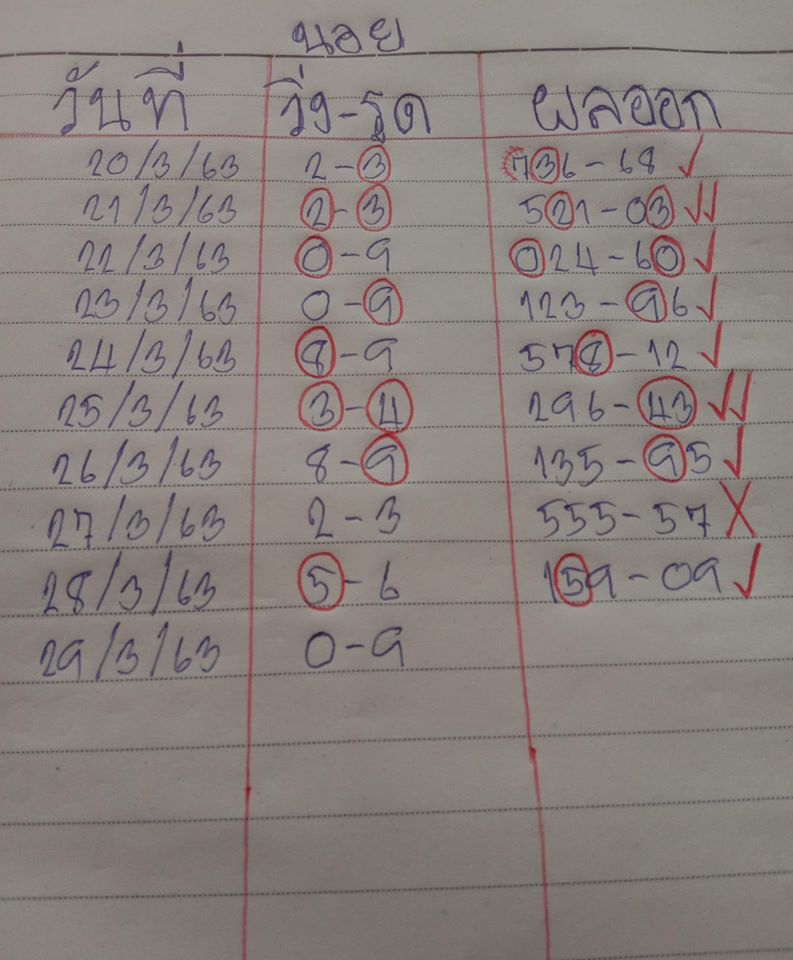 นอย
วันที่ วิ่ง-รูด ผลออก
20/3/63 2-3 736-68 ✓
21/3/63 2-3 521-03 ✓✓
22/3/63 0-9 024-60 ✓
23/3/63 0-9 123-96 ✓
24/3/63 8-9 578-12 ✓
25/3/63 3-4 296-43 ✓✓
26/3/63 8-9 135-95 ✓
27/3/63 2-3 555-57 X
28/3/63 5-6 159-09 ✓
29/3/63 0-9